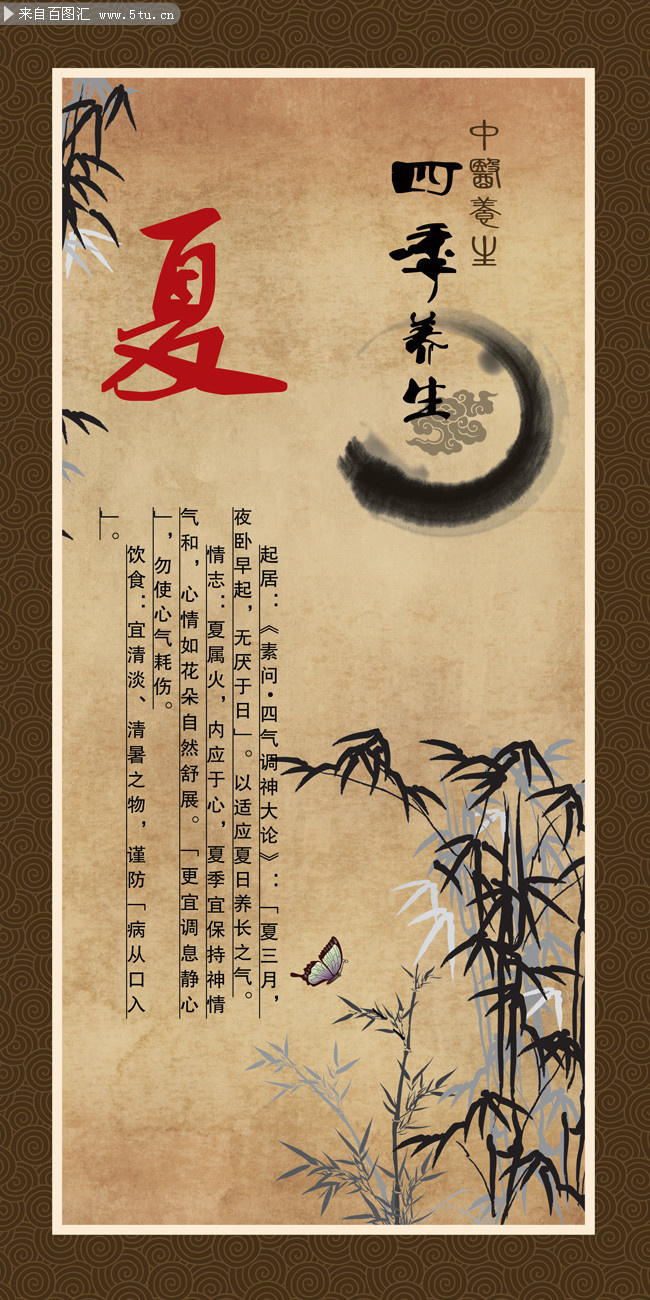 来自百图汇 www.5tu.cn
中醫養生
四季养生
夏
起居：《素问·四气调神大论》：「夏三月，
夜卧早起，无厌于日」。以适应夏日养长之气。
情志：夏属火，内应于心，夏季宜保持神情
气和，心情如花朵自然舒展。「更宜调息静心
」，勿使心气耗伤。
饮食：宜清淡、清暑之物，谨防「病从口入
」。